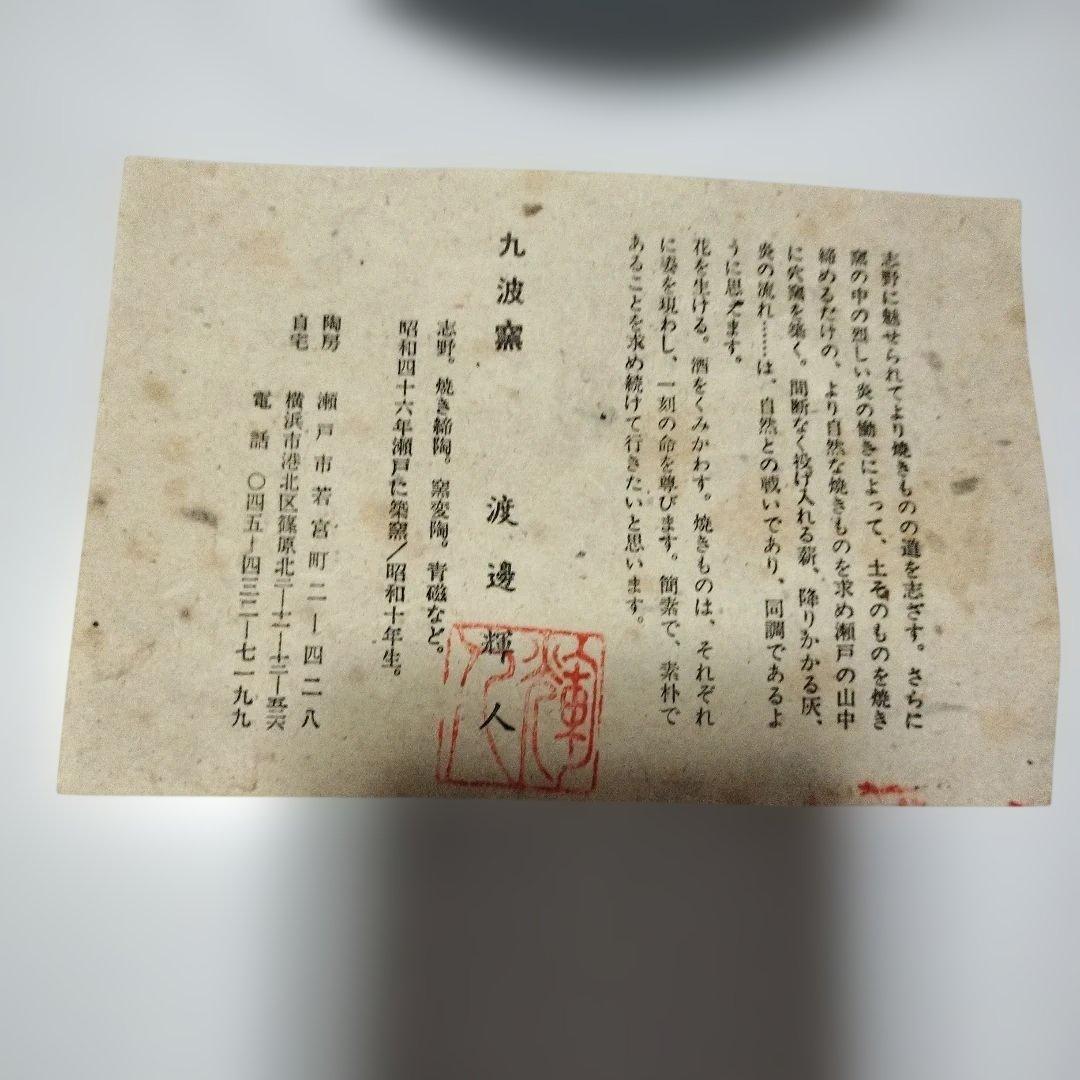 志野に魅せられてより焼きものの道を志ざす。さらに
窯の中の烈しい炎の働きによって、土そのものを焼き
締めるだけの、より自然な焼きものを求め瀬戸の山中
に穴窯を築く。間断なく投げ入れる薪、降りかかる灰、
炎の流れ……は、自然との戦いであり、同調であるよ
うに思えます。
花を生ける。酒をくみかわす。焼きものは、それぞれ
に姿を現わし、一刻の命を尊びます。簡素で、素朴で
あることを求め続けて行きたいと思います。
九波窯 渡邊輝人
志野。焼き締陶。窯変陶。青磁など。
昭和四十六年瀬戸に築窯/昭和十年生。
陶房 瀬戸市若宮町二ー四二八
自宅 横浜市港北区篠原北二ー十一ー十三ー五三六
電話 〇四五ー四三二ー七一九九
輝人